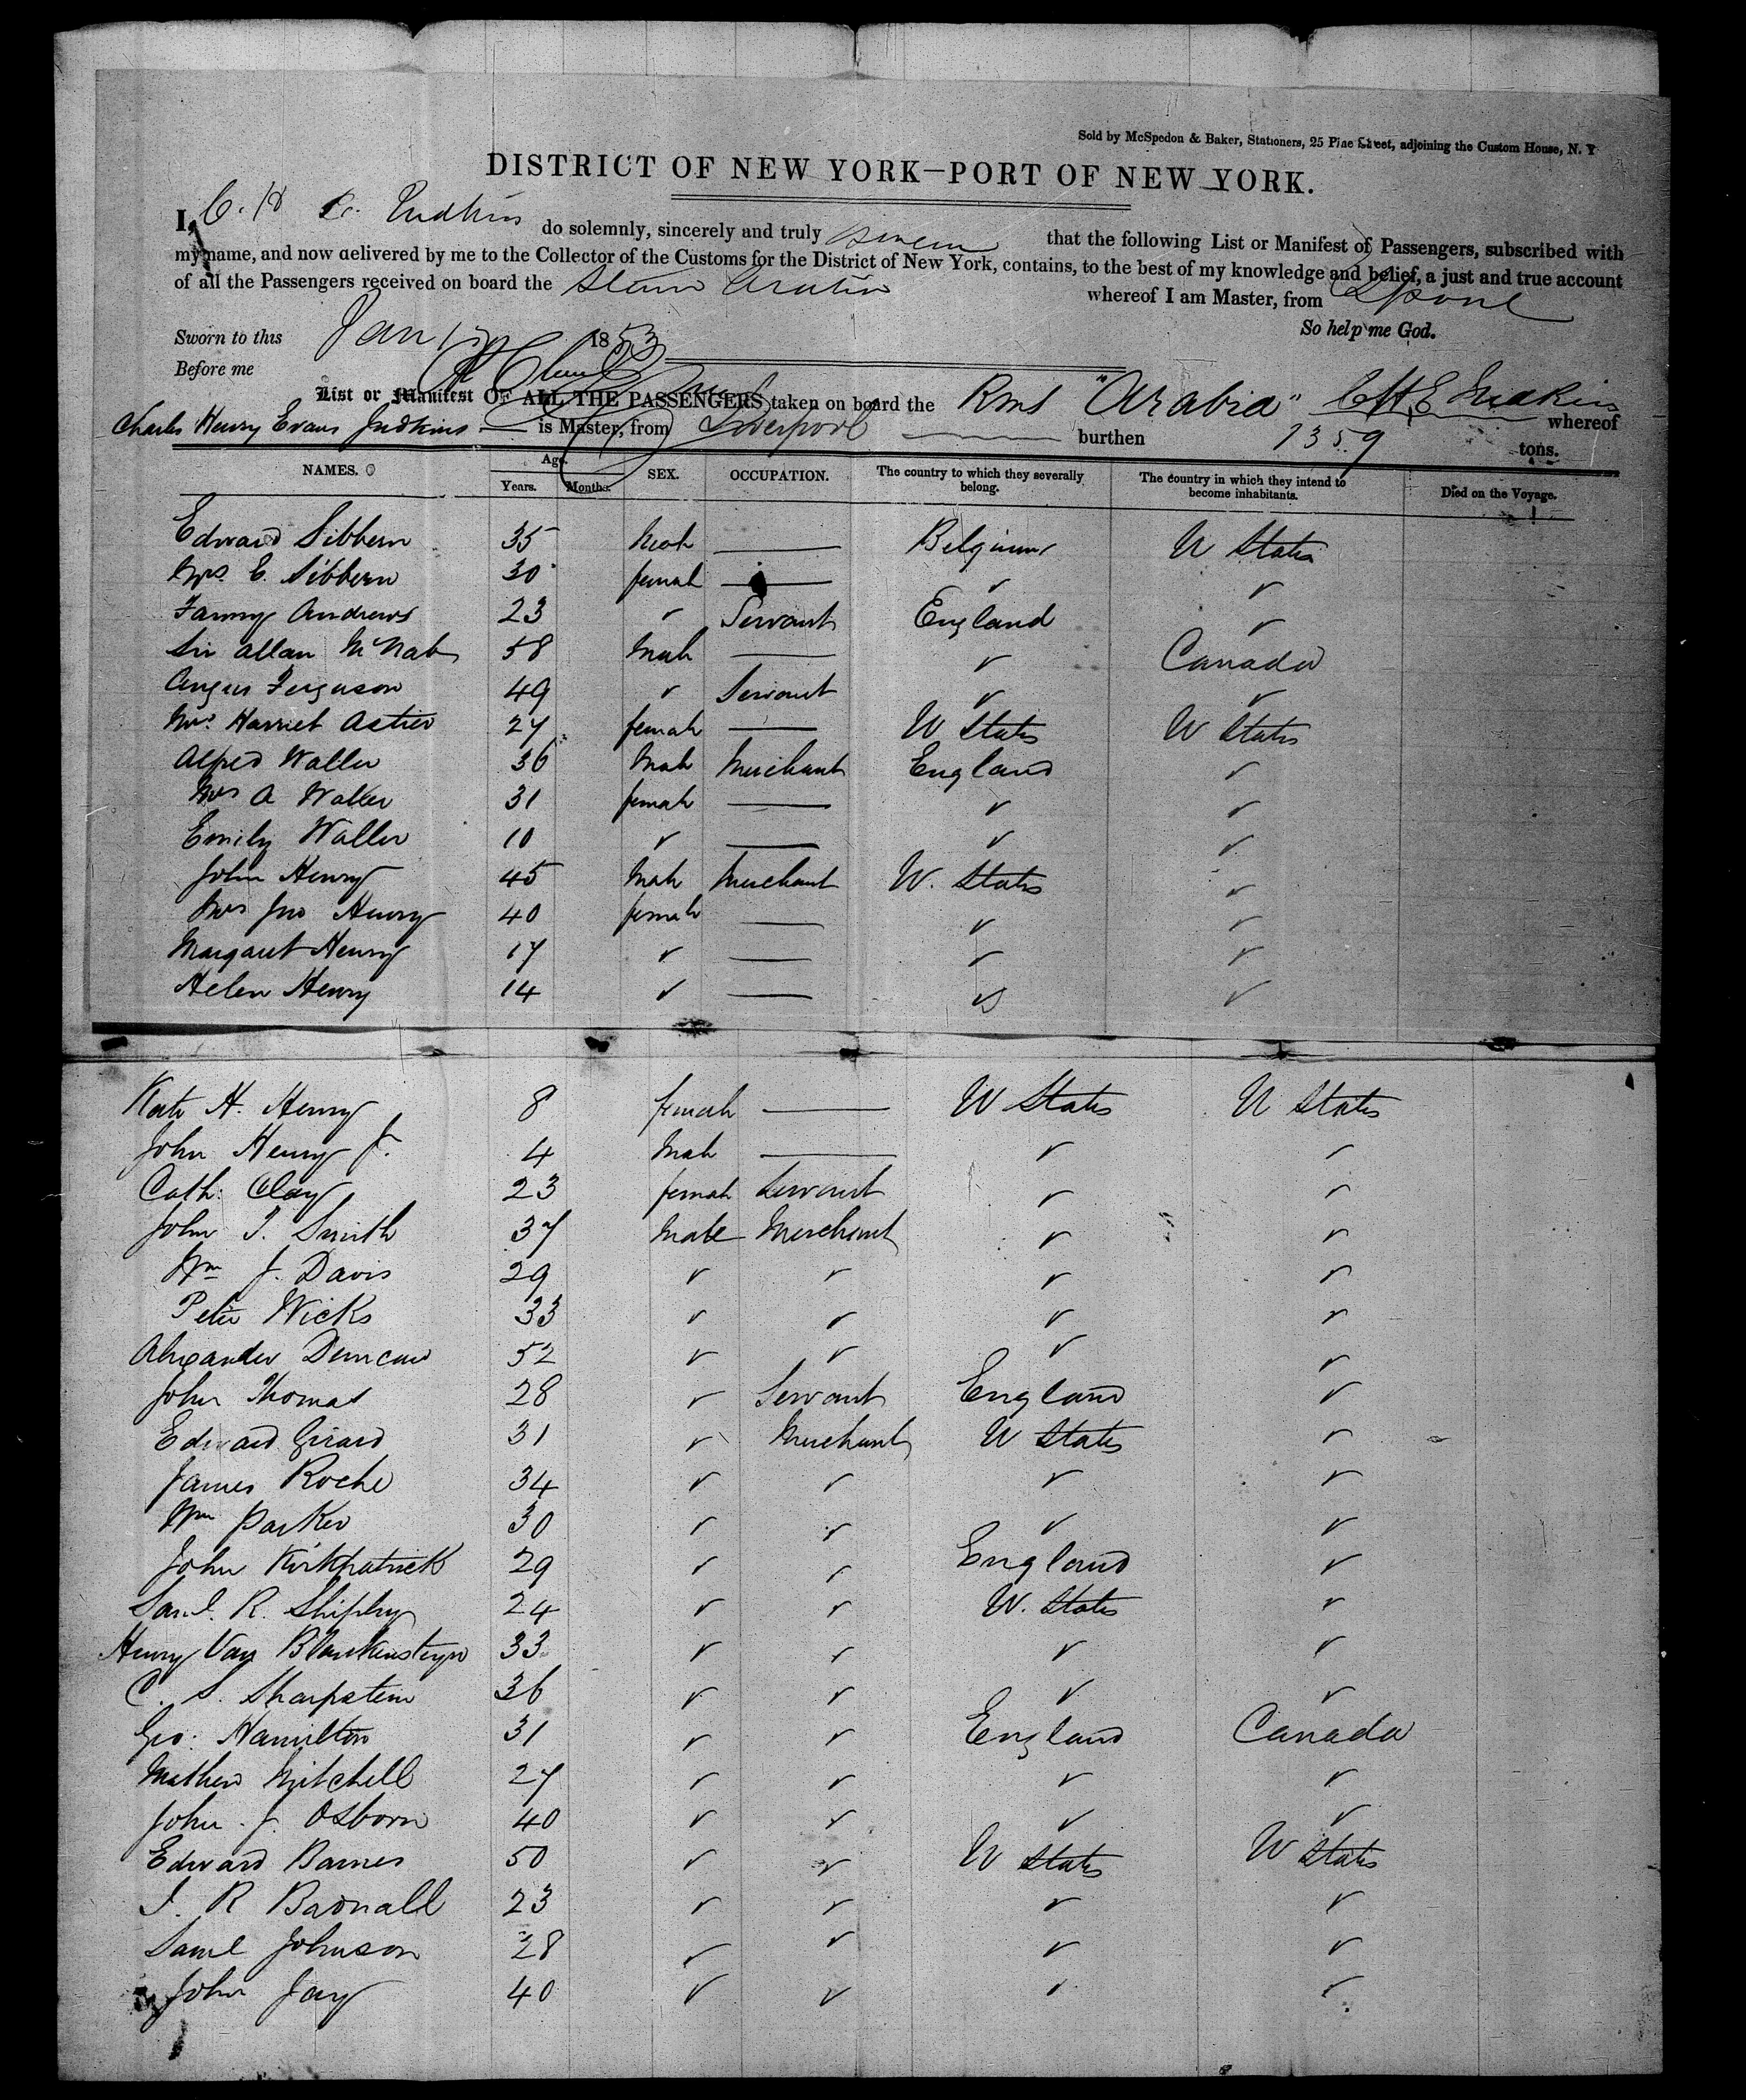 Sold by McSpedon & Baker, Stationers, 25 Pine Street, adjoining the Custom House, N. Y
DISTRICT OF NEW YORK—PORT OF NEW YORK.
I, C. H E. Judkins do solemnly, sincerely and truly swear that the following List or Manifest of Passengers, subscribed with
my name, and now delivered by me to the Collector of the Customs for the District of New York, contains, to the best of my knowledge and belief, a just and true account
of all the Passengers received on board the Steam Arabia whereof I am Master, from Lpool
So help me God.
Sworn to this Jan 1853
Before me
List or Manifest OF ALL THE PASSENGERS taken on board the Rms "Arabia" C H E Judkins whereof
Charles Henry Evans Judkins is Master, from Liverpool burthen 1359 tons.
NAMES. Age. Years. Months. SEX. OCCUPATION. The country to which they severally belong. The country in which they intend to become inhabitants. Died on the Voyage.
Edward Sibbern 35 Male — Belgium U States
Mrs. E. Sibbern 30 female — ✓ ✓
Fanny Andrews 23 ✓ Servant England ✓
Sir Allan McNab 58 Male — ✓ Canada
Angus Ferguson 49 ✓ Servant ✓ ✓
Mrs. Harriet Astier 27 female — U States U States
Alfred Waller 36 Male Merchant England ✓
Mrs A Waller 31 female — ✓ ✓
Emily Waller 10 ✓ — ✓ ✓
John Henry 45 Male Merchant U. States ✓
Mrs Jno Henry 40 female — ✓ ✓
Margaret Henry 17 ✓ — ✓ ✓
Helen Henry 14 ✓ — ✓ ✓
Kate H. Henry 8 female — U States U States
John Henry Jr. 4 Male — ✓ ✓
Cath: Clay 23 female Servant ✓ ✓
John T. Smith 37 Male Merchant ✓ ✓
Wm J. Davis 29 ✓ ✓ ✓ ✓
Peter Wicks 33 ✓ ✓ ✓ ✓
Alexander Duncan 52 ✓ ✓ ✓ ✓
John Thomas 28 ✓ Servant England ✓
Edward Girard 31 ✓ Merchant U States ✓
James Roche 34 ✓ ✓ ✓ ✓
Wm Parker 30 ✓ ✓ ✓ ✓
John Kirkpatrick 29 ✓ ✓ England ✓
Saml. R. Shipley 24 ✓ ✓ U. States ✓
Henry Van Blankensteyn 33 ✓ ✓ ✓ ✓
C. S. Sharpstein 36 ✓ ✓ ✓ ✓
Geo: Hamilton 31 ✓ ✓ England Canada
Mathew Mitchell 27 ✓ ✓ ✓ ✓
John J. Osborn 40 ✓ ✓ ✓ ✓
Edward Barnes 50 ✓ ✓ U States U States
J. R Badnall 23 ✓ ✓ ✓ ✓
Saml Johnson 28 ✓ ✓ ✓ ✓
John Jay 40 ✓ ✓ ✓ ✓